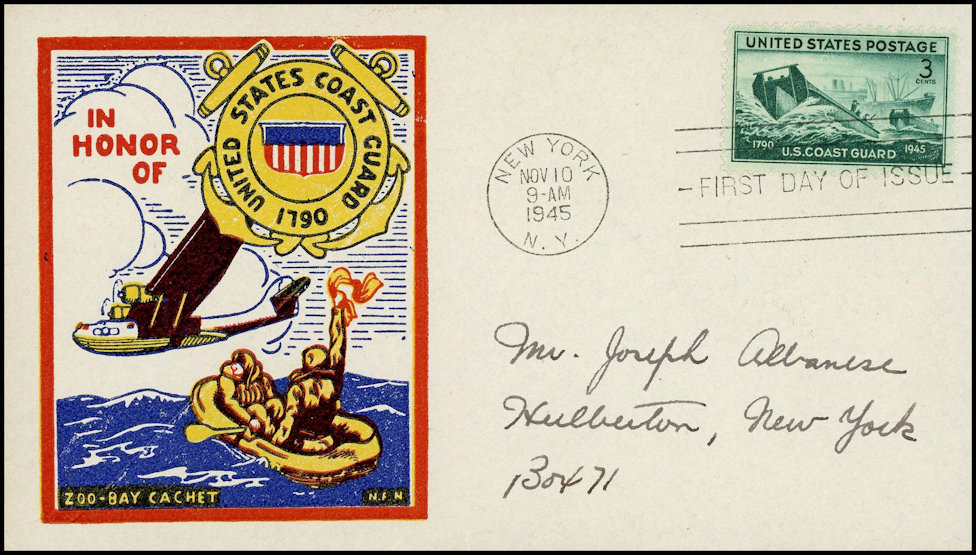 IN
HONOR
OF
UNITED STATES COAST GUARD
1790
ZOO-BAY CACHET
N.F.N
UNITED STATES POSTAGE
3
CENTS
1790
U.S. COAST GUARD
1945
NEW YORK
NOV 10
9-AM
1945
N. Y.
FIRST DAY OF ISSUE
Mr. Joseph Albanese
Hulberton, New York
Box 71